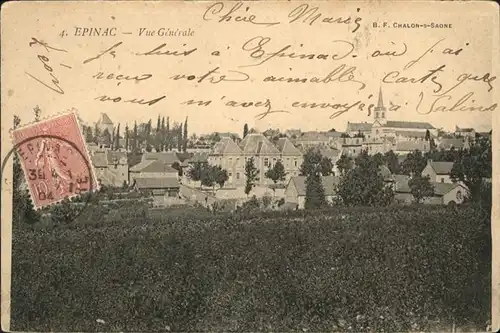 4. EPINAC — Vue Générale
B. F. CHALON-S-SAONE
Chère Marie
je suis à Epinac où j'ai
reçu votre aimable carte que
vous m'avez envoyée à Salins
EPINAC